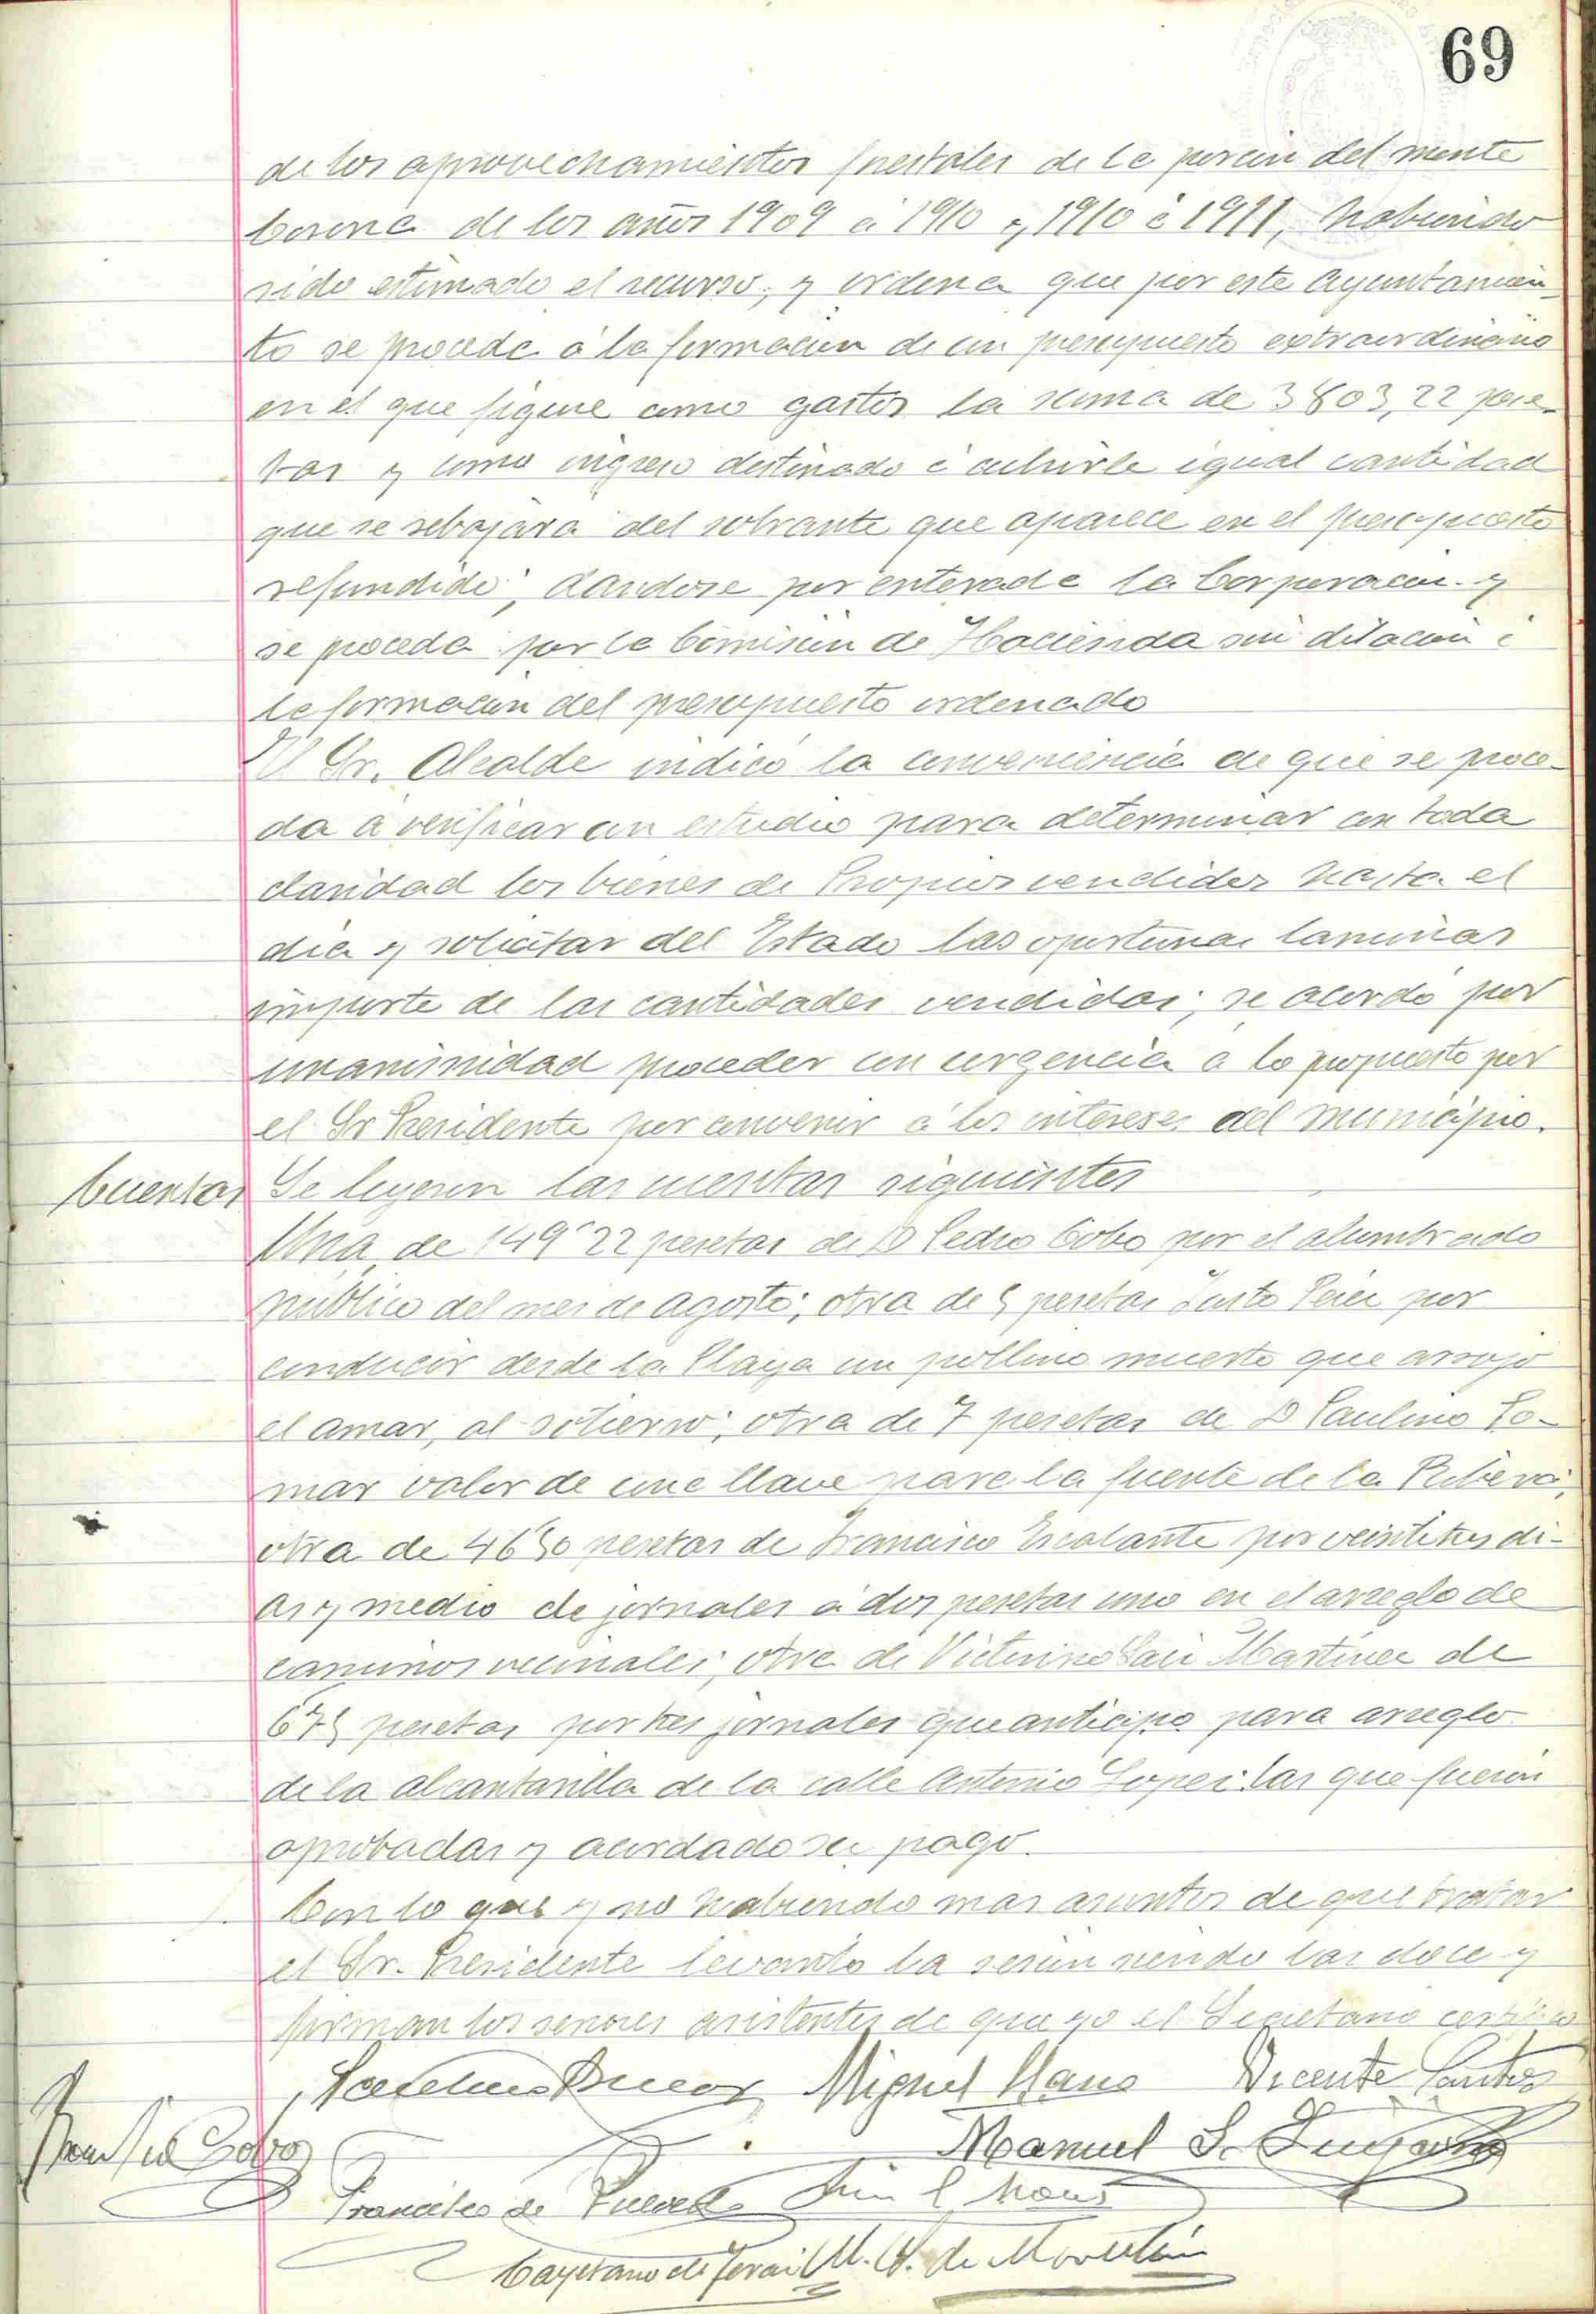 69
de los aprovechamientos forestales de la porcion del monte
Corona de los años 1909 á 1910 y 1910 á 1911, habiendo
sido estimado el recurso, y ordena que por este Ayuntamien-
to se proceda á la formacion de un presupuesto extraordinario
en el que figure como gastos la suma de 3803,22 pese-
tas y como ingreso destinado á cubrirle igual cantidad
que se rebajará del sobrante que aparece en el presupuesto
refundido; dandose por enterada la Corporacion y
se proceda por la Comision de Hacienda sin dilacion á
la formacion del presupuesto ordenado
El Sr. Alcalde indicó la conveniencia de que se proce-
da á verificar un estudio para determinar con toda
claridad los bienes de Propios vendidos hasta el
dia y solicitar del Estado las oportunas laminas
importe de las cantidades vendidas; se acordó por
unanimidad proceder con urgencia á lo propuesto por
el Sr Presidente por convenir á los intereses del municipio.
Cuentas Se leyeron las cuentas siguientes
Una, de 149'22 pesetas de D Pedro Cobo por el alumbrado
público del mes de agosto; otra de 5 pesetas Justo Perez por
conducir desde la Playa un pollino muerto que arrojo
el amar, al sotierro; otra de 7 pesetas de D Paulino To-
mar valor de una llave para la fuente de la Ribera;
otra de 46'50 pesetas de Francisco Escalante por veintitres di-
as y medio de jornales á dos pesetas uno en el arreglo de
caminos vecinales; otra de Victorino San Martinez de
6'75 pesetas por tres jornales que anticipo para arreglo
de la alcantarilla de la calle Antonio Lopez: las que fueron
aprobadas y acordado su pago.
Con lo que y no habiendo mas asuntos de que tratar
el Sr. Presidente levanto la sesion siendo las doce y
firman los señores asistentes de que yo el Secretario certifico
Miguel Llano Vicente Santos
Cobo Manuel S.
Francisco de
Cayetano de Teran M. G. de